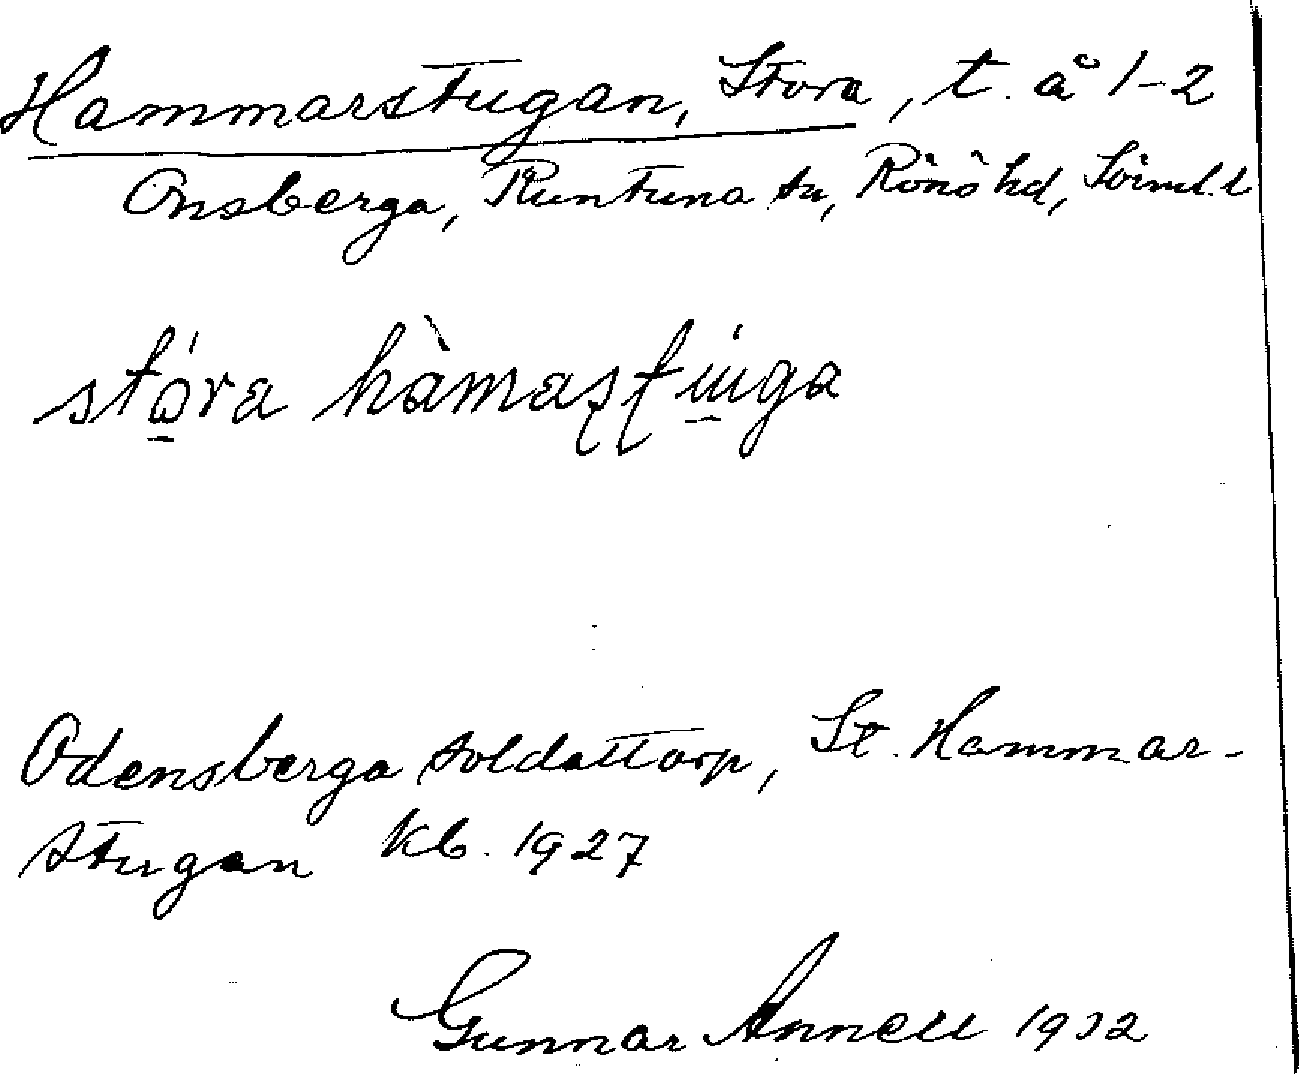 Hammarstugan, Stora, t. å 1-2
Onsberga, Runtuna sn, Rönö hd, Sörml. l
stó̠ra hàmaʂʈu̠ga
Odensberga soldattorp, St. Hammar-
stugan Kb. 1927
Gunnar Annell 1932